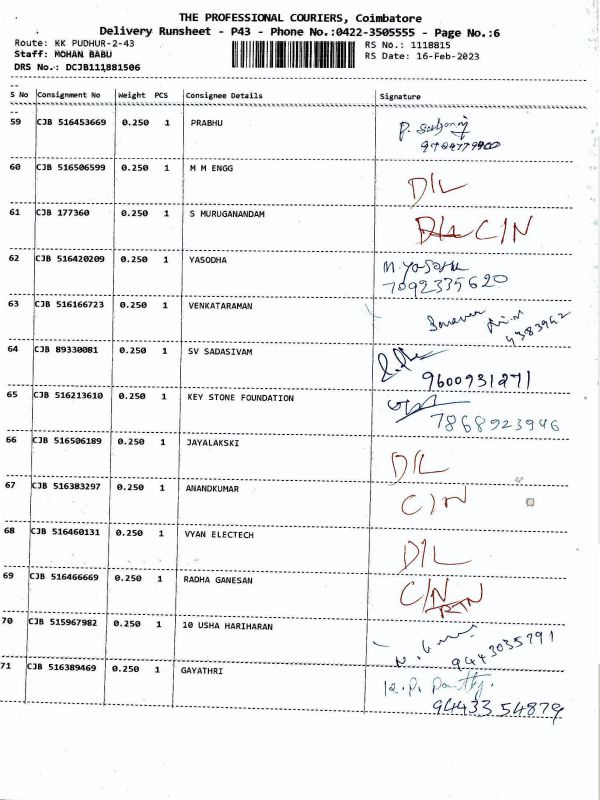 THE PROFESSIONAL COURIERS, Coimbatore
Delivery Runsheet - P43 - Phone No.:0422-3505555 - Page No.:6
Route: KK PUDHUR-2-43 RS No.: 1118815
Staff: MOHAN BABU RS Date: 16-Feb-2023
DRS No.: DCJB111881506
S No Consignment No Weight PCS Consignee Details Signature
59 CJB 516453669 0.250 1 PRABHU P.
60 CJB 516506599 0.250 1 M M ENGG D/L
61 CJB 177360 0.250 1 S MURUGANANDAM C/N
62 CJB 516420209 0.250 1 YASODHA M.
7092335620
63 CJB 516166723 0.250 1 VENKATARAMAN
64 CJB 89330081 0.250 1 SV SADASIVAM
9600931271
65 CJB 516213610 0.250 1 KEY STONE FOUNDATION
7868923946
66 CJB 516506189 0.250 1 JAYALAKSKI D/L
67 CJB 516383297 0.250 1 ANANDKUMAR C/N
68 CJB 516460131 0.250 1 VYAN ELECTECH D/L
69 CJB 516466669 0.250 1 RADHA GANESAN C/N
RTN
70 CJB 515967982 0.250 1 10 USHA HARIHARAN
9443035291
71 CJB 516389469 0.250 1 GAYATHRI
9443354879